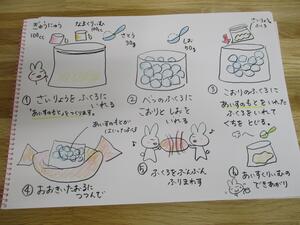 ぎゅうにゅう
100cc
なまくりーむ
100cc
さとう
30g
しお
50g
ざいりょう
ふくろ
① ざいりょうを ふくろに
いれる
"あいすのもと"をつくります。
② べつのふくろに
こおりと しおを
いれる
③ こおりのふくろに
あいすのもとをいれた
ふくろをいれて
くちをとじる。
あいすのもとが
はいったふくろ
④ おおきいたおるに
つつんで
⑤ ふくろをぶんぶん
ふりまわす
⑥ あいすくりーむの
できあがり